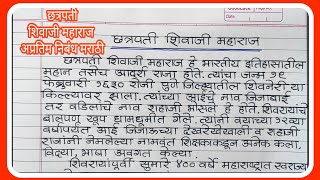 छत्रपती
शिवाजी महाराज
अप्रतिम निबंध मराठी
छत्रपती शिवाजी महाराज
छत्रपती शिवाजी महाराज हे भारतीय इतिहासातील
महान तसेच आदर्श राजा होते. त्यांचा जन्म १९
फेब्रुवारी १६३० रोजी पुणे जिल्ह्यातील शिवनेरी या
किल्ल्यावर झाला. त्यांच्या आईचे नाव जिजाबाई
तर वडिलांचे नाव शहाजी भोसले हे होते. शिवरायांचे
बालपण खूप धामधुमीत गेले. त्यांनी वयाच्या १२व्या
वर्षापर्यंत आई जिजाऊच्या देखरेखेखाली व शहाजी
राजांनी नेमलेल्या नामवंत शिक्षकाकडून अनेक कला,
विद्या, भाषा अवगत केल्या.
शिवरायांपूर्वी सुमारे ४०० वर्षे महाराष्ट्रात स्वराज्य